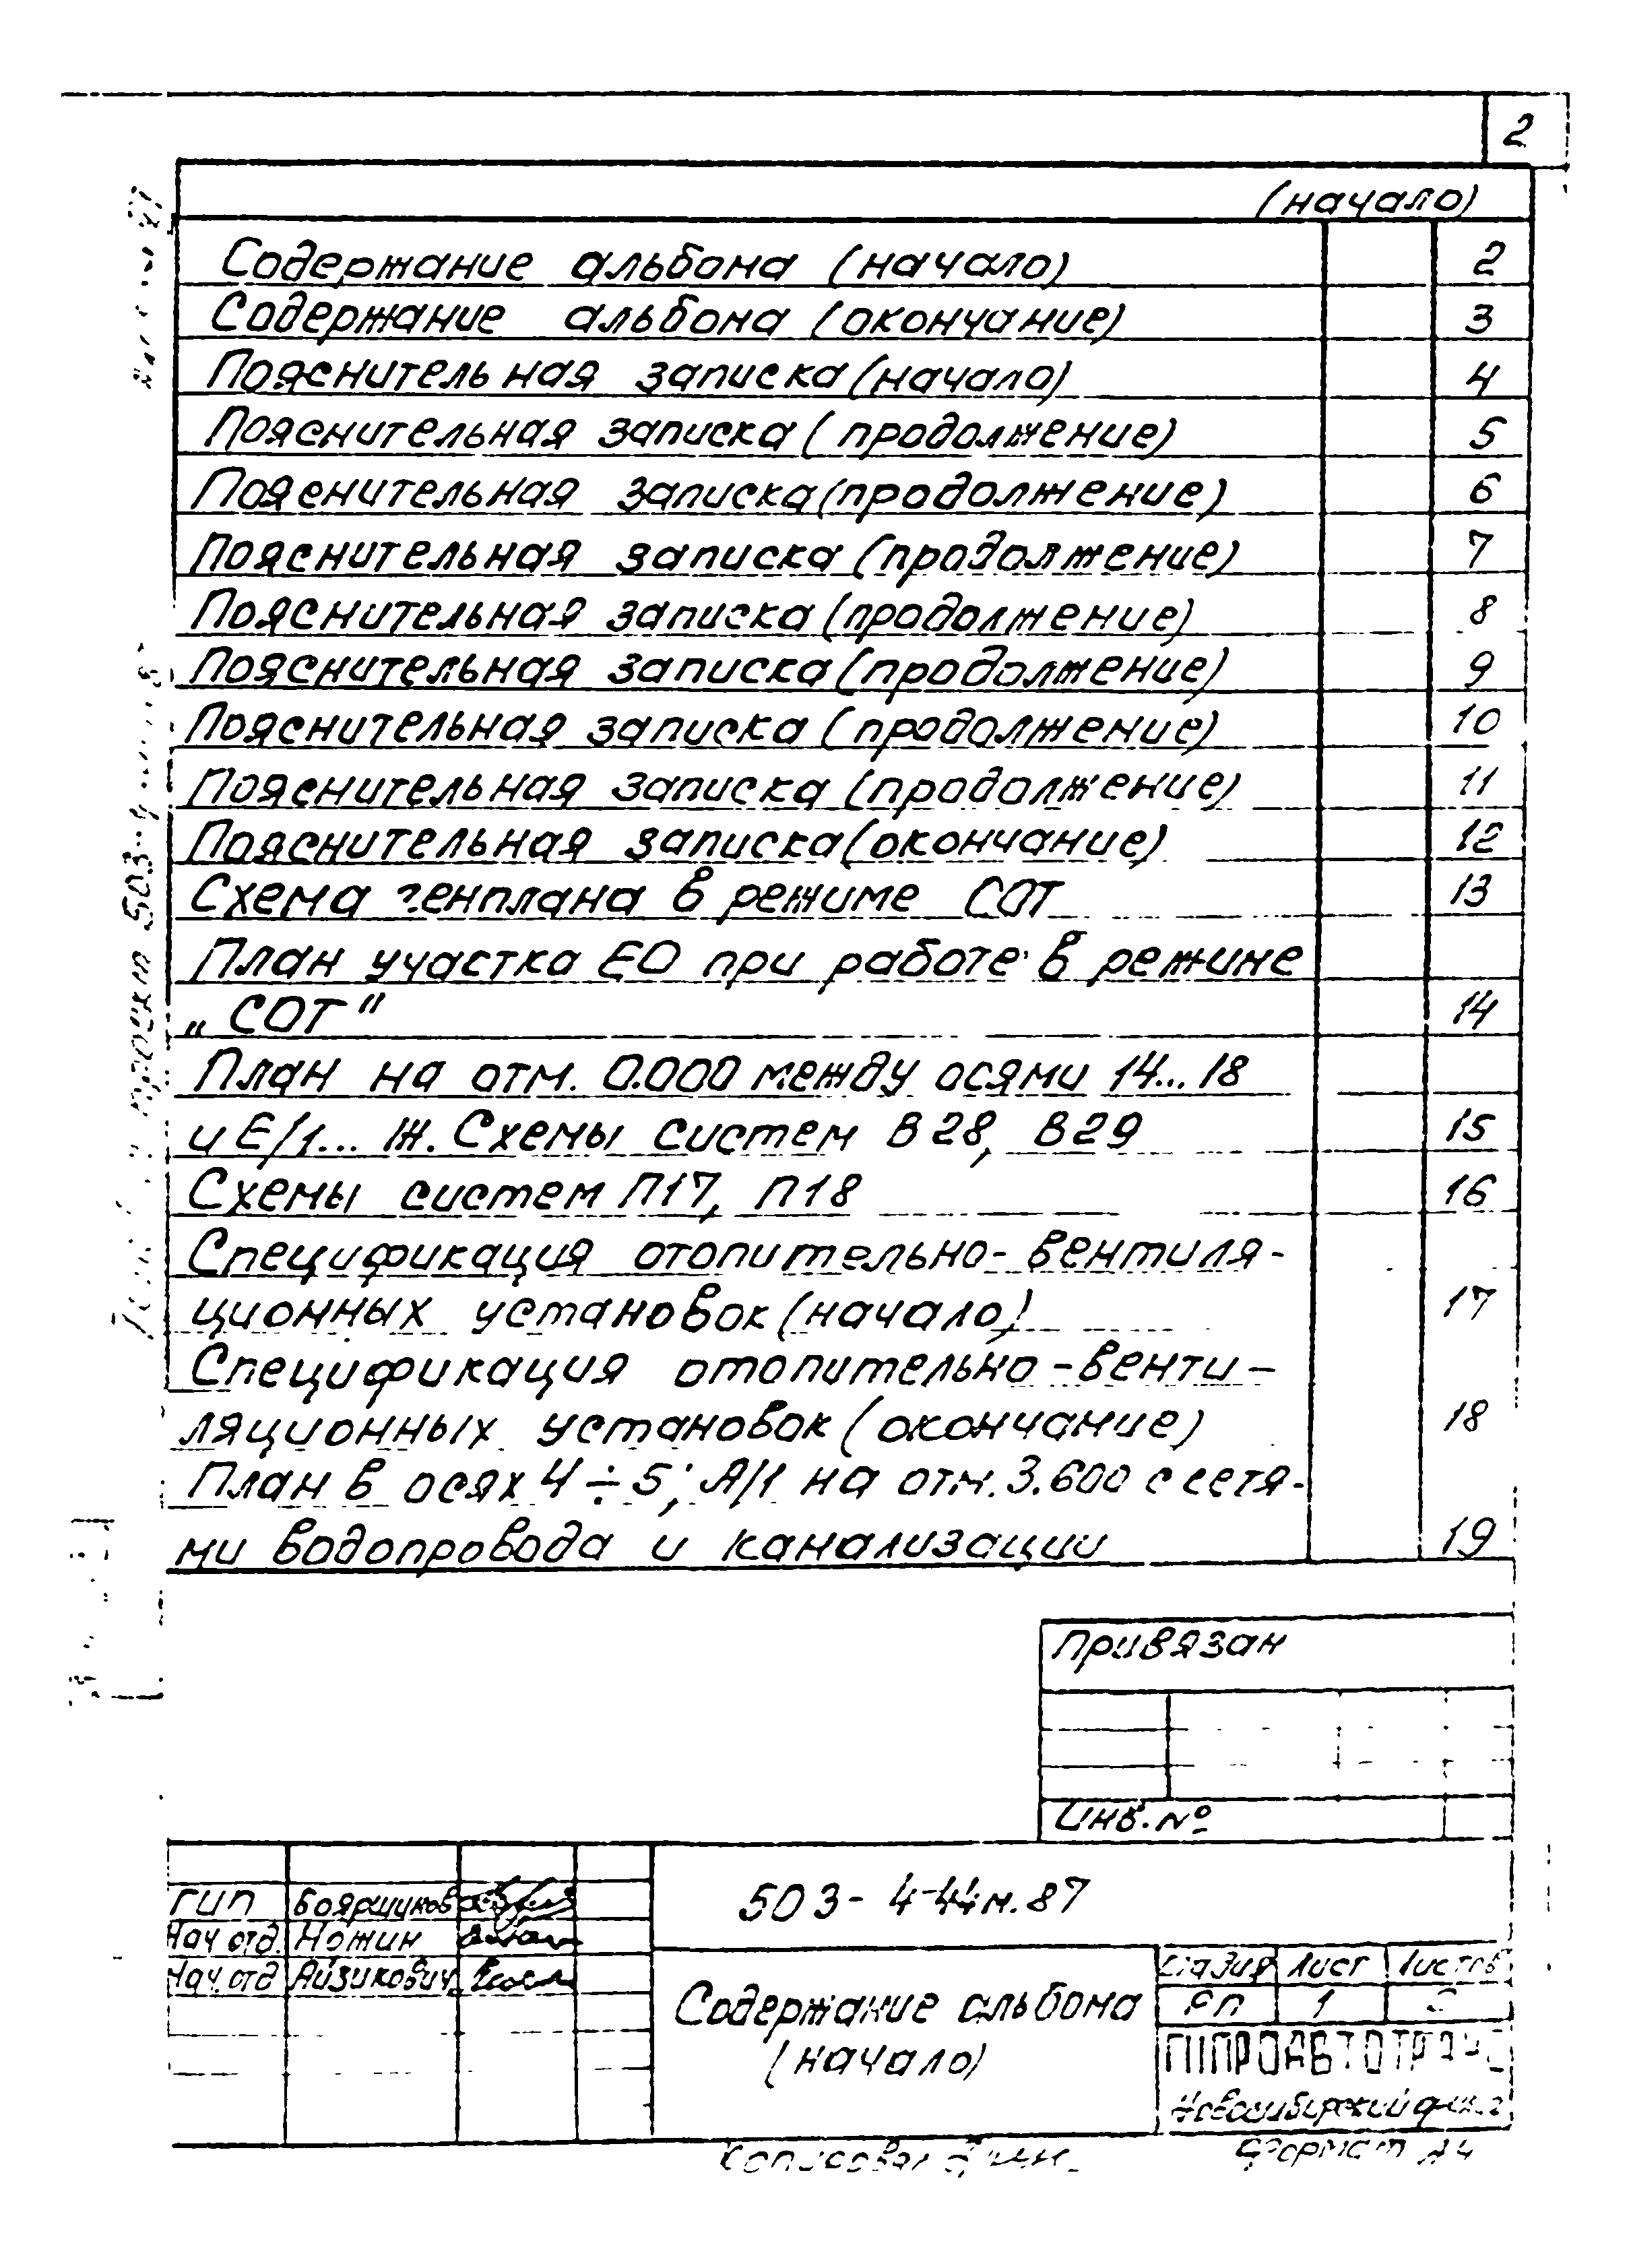 2
(начало)
Содержание альбома (начало) 2
Содержание альбома (окончание) 3
Пояснительная записка (начало) 4
Пояснительная записка (продолжение) 5
Пояснительная записка (продолжение) 6
Пояснительная записка (продолжение) 7
Пояснительная записка (продолжение) 8
Пояснительная записка (продолжение) 9
Пояснительная записка (продолжение) 10
Пояснительная записка (продолжение) 11
Пояснительная записка (окончание) 12
Схема генплана в режиме СОТ 13
План участка ЕО при работе в режиме
„СОТ" 14
План на отм. 0.000 между осями 14...18
и Е/1... Ж. Схемы систем В28, В29 15
Схемы систем П17, П18 16
Спецификация отопительно-вентиля-
ционных установок (начало) 17
Спецификация отопительно-венти-
ляционных установок (окончание) 18
План в осях 4÷5; А/1 на отм. 3.600 с сетя-
ми водопровода и канализации 19
Привязан
Инв. №
503-4-44м.87
ГИП Бояршунов
Нач отд. Ножин
Нач. отд Айзикович
Содержание альбома
(начало)
Стадия Лист Листов
РП 1
ГИПРОАВТОТРАНС
Новосибирский филиал
Копировал
Формат А4
проект 503-4